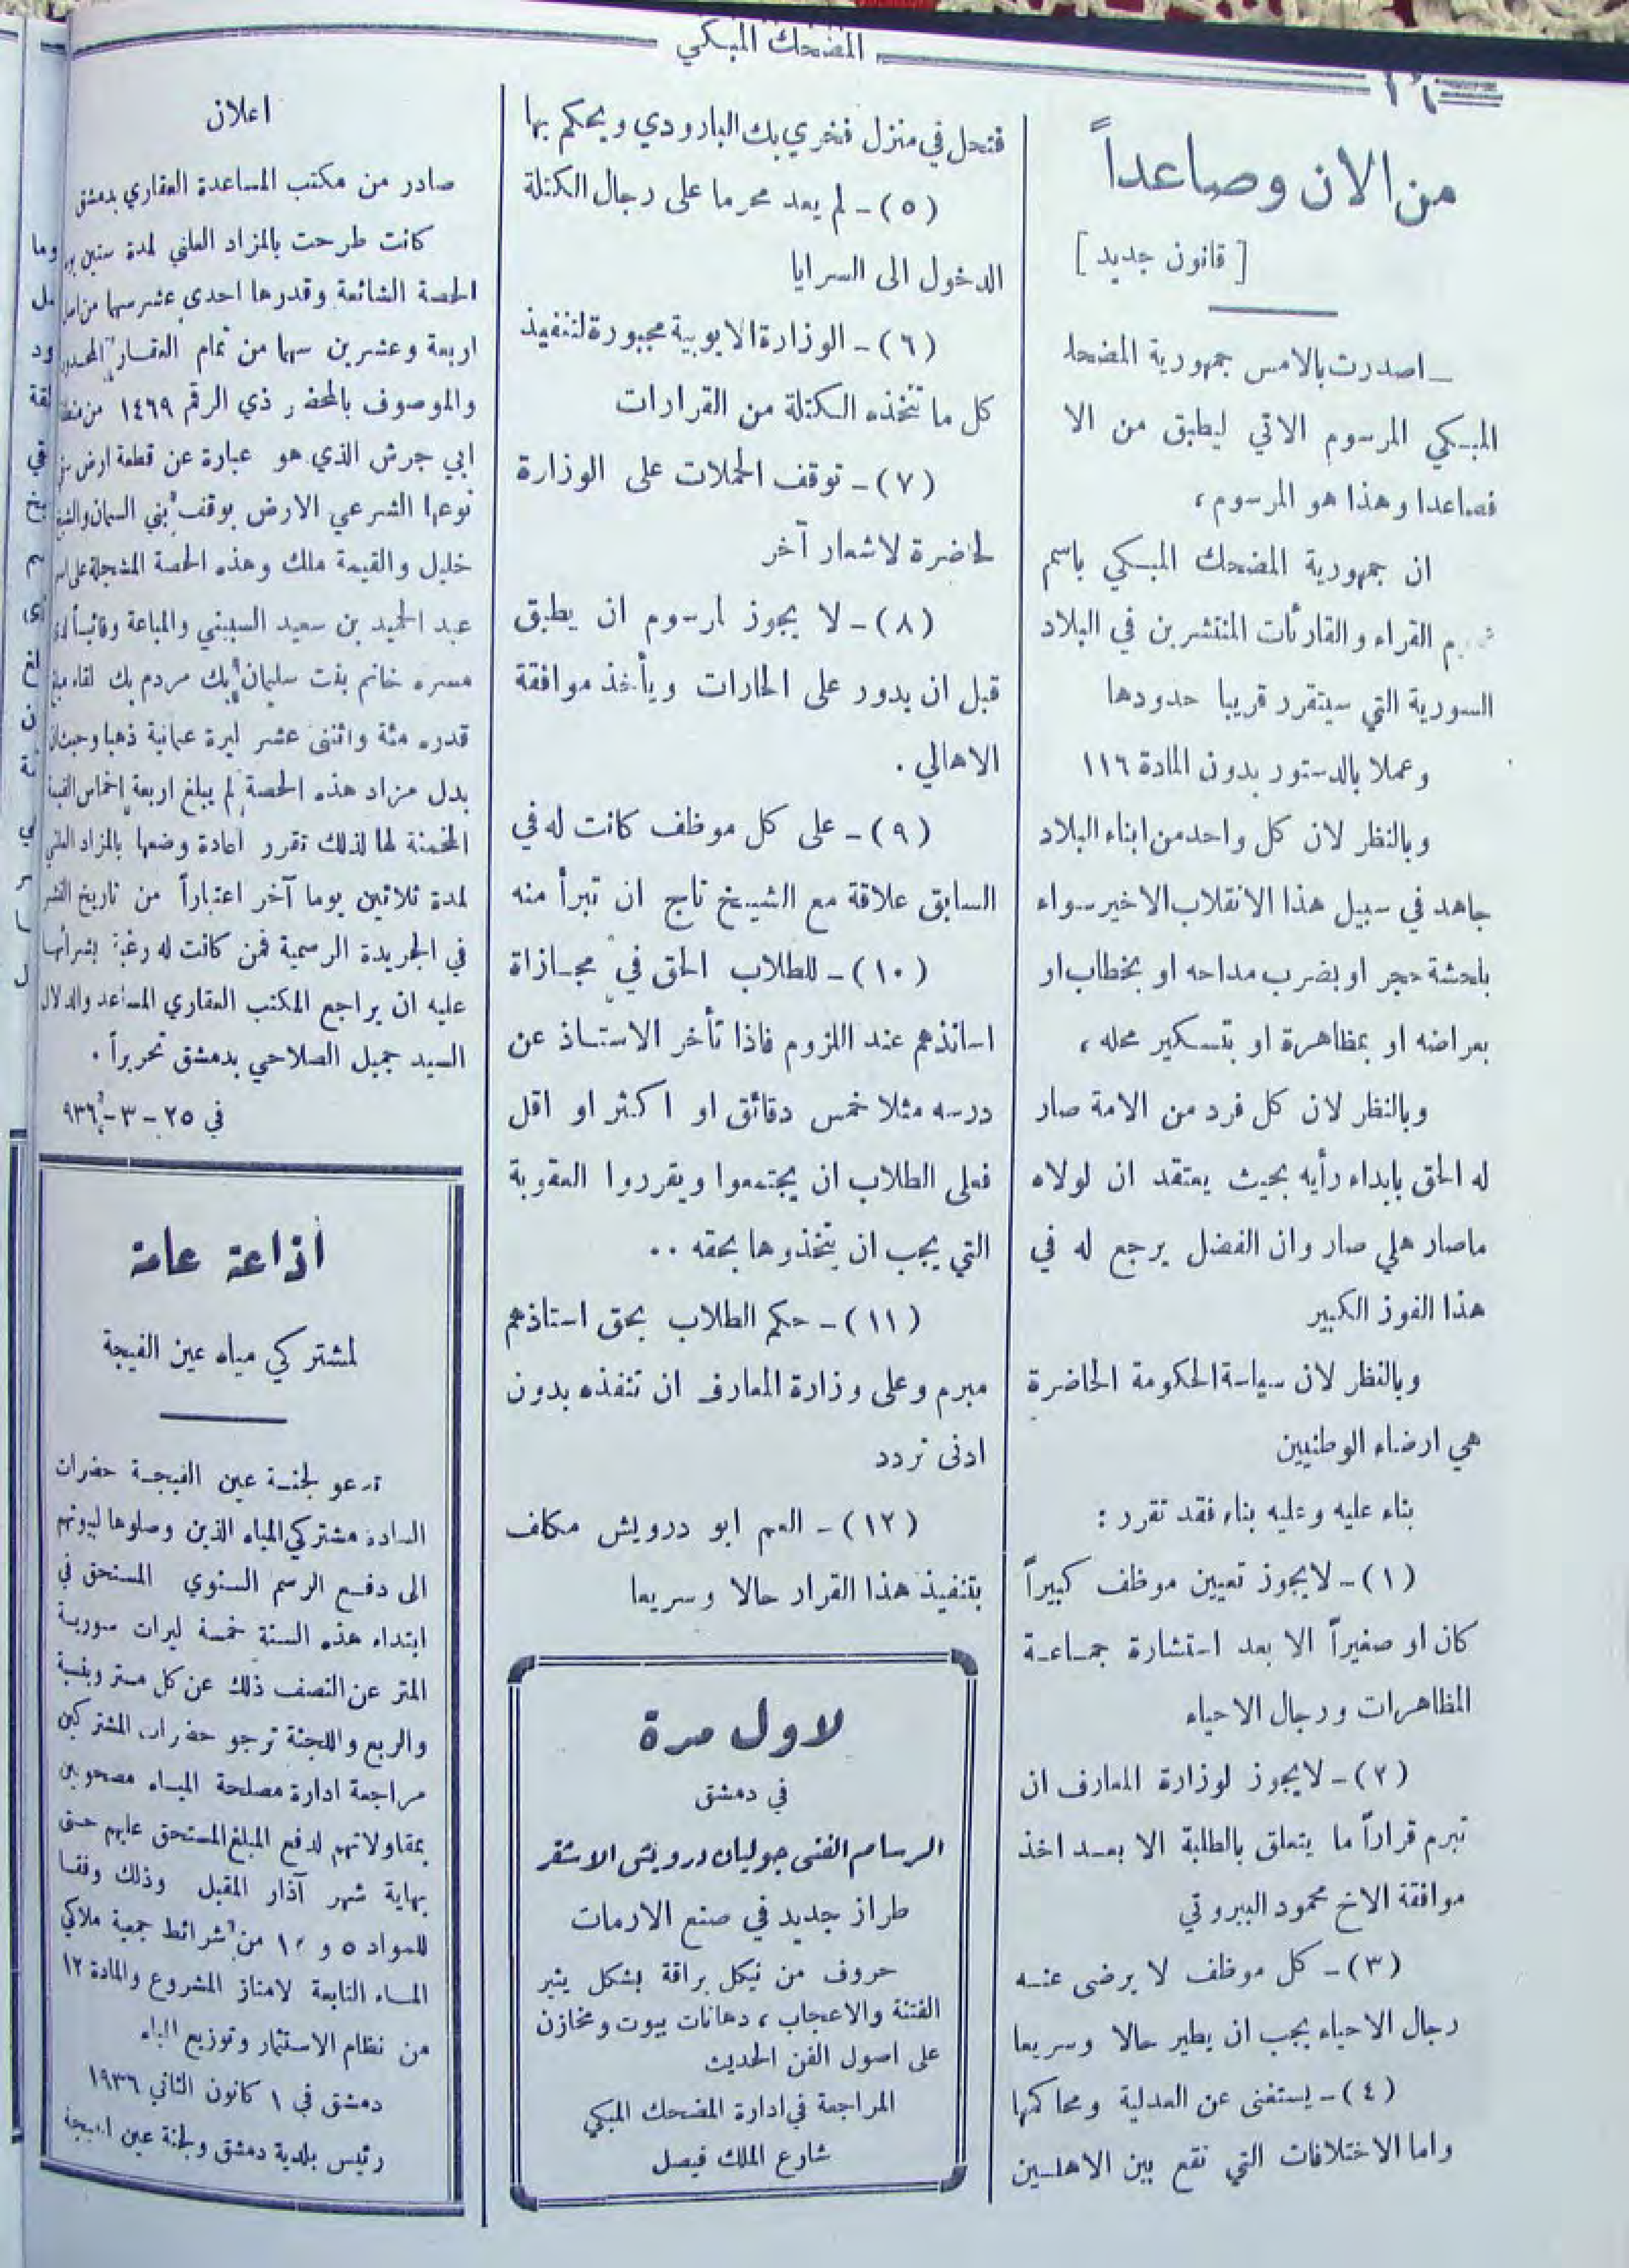 المضحك المبكي
١٦
من الان وصاعداً
[ قانون جديد ]
ـ اصدرت بالامس جمهورية المضحك
المبكي المرسوم الاتي ليطبق من الا
فصاعدا وهذا هو المرسوم ،
ان جمهورية المضحك المبكي باسم
القراء والقارئات المنتشرين في البلاد
السورية التي سيتقرر قريبا حدودها
وعملا بالدستور بدون المادة ١١٦
وبالنظر لان كل واحد من ابناء البلاد
جاهد في سبيل هذا الانقلاب الاخير سواء
بلحشة حجر او بضرب مداحه او بخطاب او
بعراضه او بمظاهرة او بتسكير محله ،
وبالنظر لان كل فرد من الامة صار
له الحق بابداء رأيه بحيث يعتقد ان لولاه
ماصار هلي صار وان الفضل يرجع له في
هذا الفوز الكبير
وبالنظر لان سياسة الحكومة الحاضرة
هي ارضاء الوطنيين
بناء عليه وعليه بناء فقد تقرر :
(١) ـ لايجوز تعيين موظف كبيراً
كان او صغيراً الا بعد استشارة جماعة
المظاهرات ورجال الاحياء
(٢) ـ لايجوز لوزارة المعارف ان
تبرم قراراً ما يتعلق بالطلبة الا بعد اخذ
موافقة الاخ محمود البيروتي
(٣) ـ كل موظف لا يرضى عنه
رجال الاحياء يجب ان يطير حالا وسريعا
(٤) ـ يستغنى عن العدلية ومحاكمها
واما الاختلافات التي تقع بين الاهلين
فتحل في منزل فخري بك البارودي ويحكم بها
(٥) ـ لم يعد محرما على رجال الكتلة
الدخول الى السرايا
(٦) ـ الوزارة الايوبية مجبورة لتنفيذ
كل ما تتخذه الكتلة من القرارات
(٧) ـ توقف الحملات على الوزارة
لحاضرة لاشعار آخر
(٨) ـ لا يجوز لمرسوم ان يطبق
قبل ان يدور على الحارات ويأخذ موافقة
الاهالي .
(٩) ـ على كل موظف كانت له في
السابق علاقة مع الشيخ تاج ان تبرأ منه
(١٠) ـ للطلاب الحق في مجازاة
اساتذهم عند اللزوم فاذا تأخر الاستاذ عن
درسه مثلا خمس دقائق او اكثر او اقل
فعلى الطلاب ان يجتمعوا ويقرروا العقوبة
التي يجب ان يتخذوها بحقه ..
(١١) ـ حكم الطلاب بحق استاذهم
مبرم وعلى وزارة المعارف ان تنفذه بدون
ادنى تردد
(١٢) ـ العم ابو درويش مكلف
بتنفيذ هذا القرار حالا وسريعا
لاول مرة
في دمشق
الرسام الفني جوليان درويش الاشقر
طراز جديد في صنع الارمات
حروف من نيكل براقة بشكل يثير
الفتنة والاعجاب ، دهانات بيوت ومخازن
على اصول الفن الحديث
المراجعة في ادارة المضحك المبكي
شارع الملك فيصل
اعلان
صادر من مكتب المساعدة العقاري بدمشق
كانت طرحت بالمزاد العلني لمدة ستين
الحصة الشائعة وقدرها احدى عشر سهما من اصل
اربعة وعشرين سهما من تمام العقار المحدود
والموصوف بالمحضر ذي الرقم ١٤٦٩ من
ابي جرش الذي هو عبارة عن قطعة ارض
نوعها الشرعي الارض بوقف بني السمان والشيخ
خليل والقيمة ملك وهذه الحصة المسجلة على اسم
عبد الحميد بن سعيد السبيني والمباعة
مسره خانم بنت سليمان بك مردم بك لقاء مبلغ
قدره مئة واثنى عشر ليرة عثمانية ذهبا وحيث ان
بدل مزاد هذه الحصة لم يبلغ اربعة اخماس القيمة
المخمنة لها لذلك تقرر اعادة وضعها بالمزاد العلني
لمدة ثلاثين يوما آخر اعتباراً من تاريخ النشر
في الجريدة الرسمية فمن كانت له رغبة بشرائها
عليه ان يراجع المكتب العقاري المساعد والدلال
السيد جميل الصلاحي بدمشق تحريراً .
في ٢٥ ـ ٣ ـ ٩٣٦
اذاعة عامة
لمشتركي مياه عين الفيجة
تدعو لجنة عين الفيجة حضرات
السادة مشتركي المياه الذين وصلوها لبيوتهم
الى دفع الرسم السنوي المستحق في
ابتداء هذه السنة خمسة ليرات سورية
المتر عن النصف ذلك عن كل متر وبنسبة
والربع واللجنة ترجو حضرات المشتركين
مراجعة ادارة مصلحة المياه مصحوبين
بمقاولاتهم لدفع المبلغ المستحق عليهم حتى
نهاية شهر آذار المقبل وذلك وفقا
للمواد ٥ و ١٠ من شرائط جمعية ملاكي
الماء التابعة لامتاز المشروع والمادة ١٢
من نظام الاستثمار وتوزيع الماء
دمشق في ١ كانون الثاني ١٩٣٦
رئيس بلدية دمشق ولجنة عين الفيجة